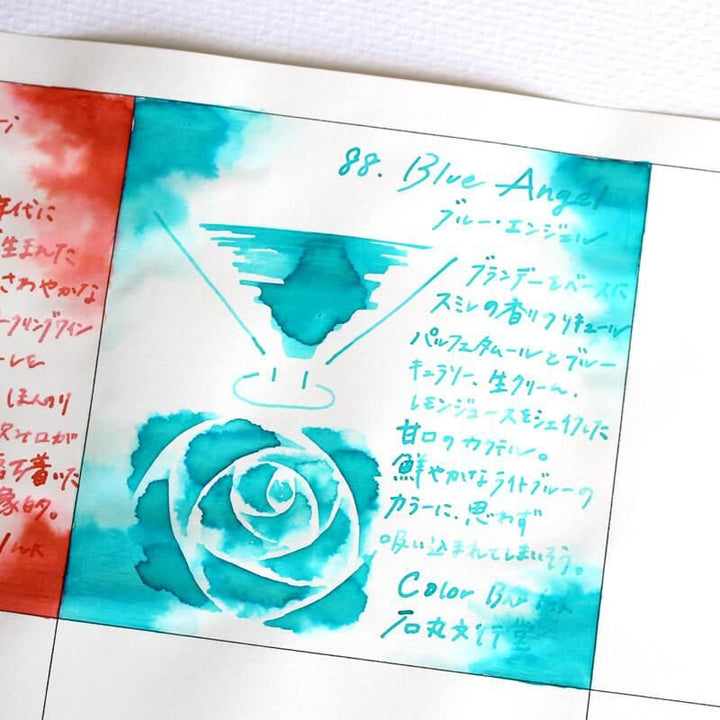 年代に
生まれた
さわやかな
ークリングワイン
ーレを
ほんのり
が
落ち着いた
象的。
Ink
88. Blue Angel
ブルー・エンジェル
ブランデーをベースに
スミレの香りリキュール
パルフェタムールとブルー
キュラソー、生クリーム、
レモンジュースをシェイクした
甘口のカクテル。
鮮やかなライトブルーの
カラーに、思わず
吸い込まれてしまいそう。
Color Bar Ink
石丸文行堂